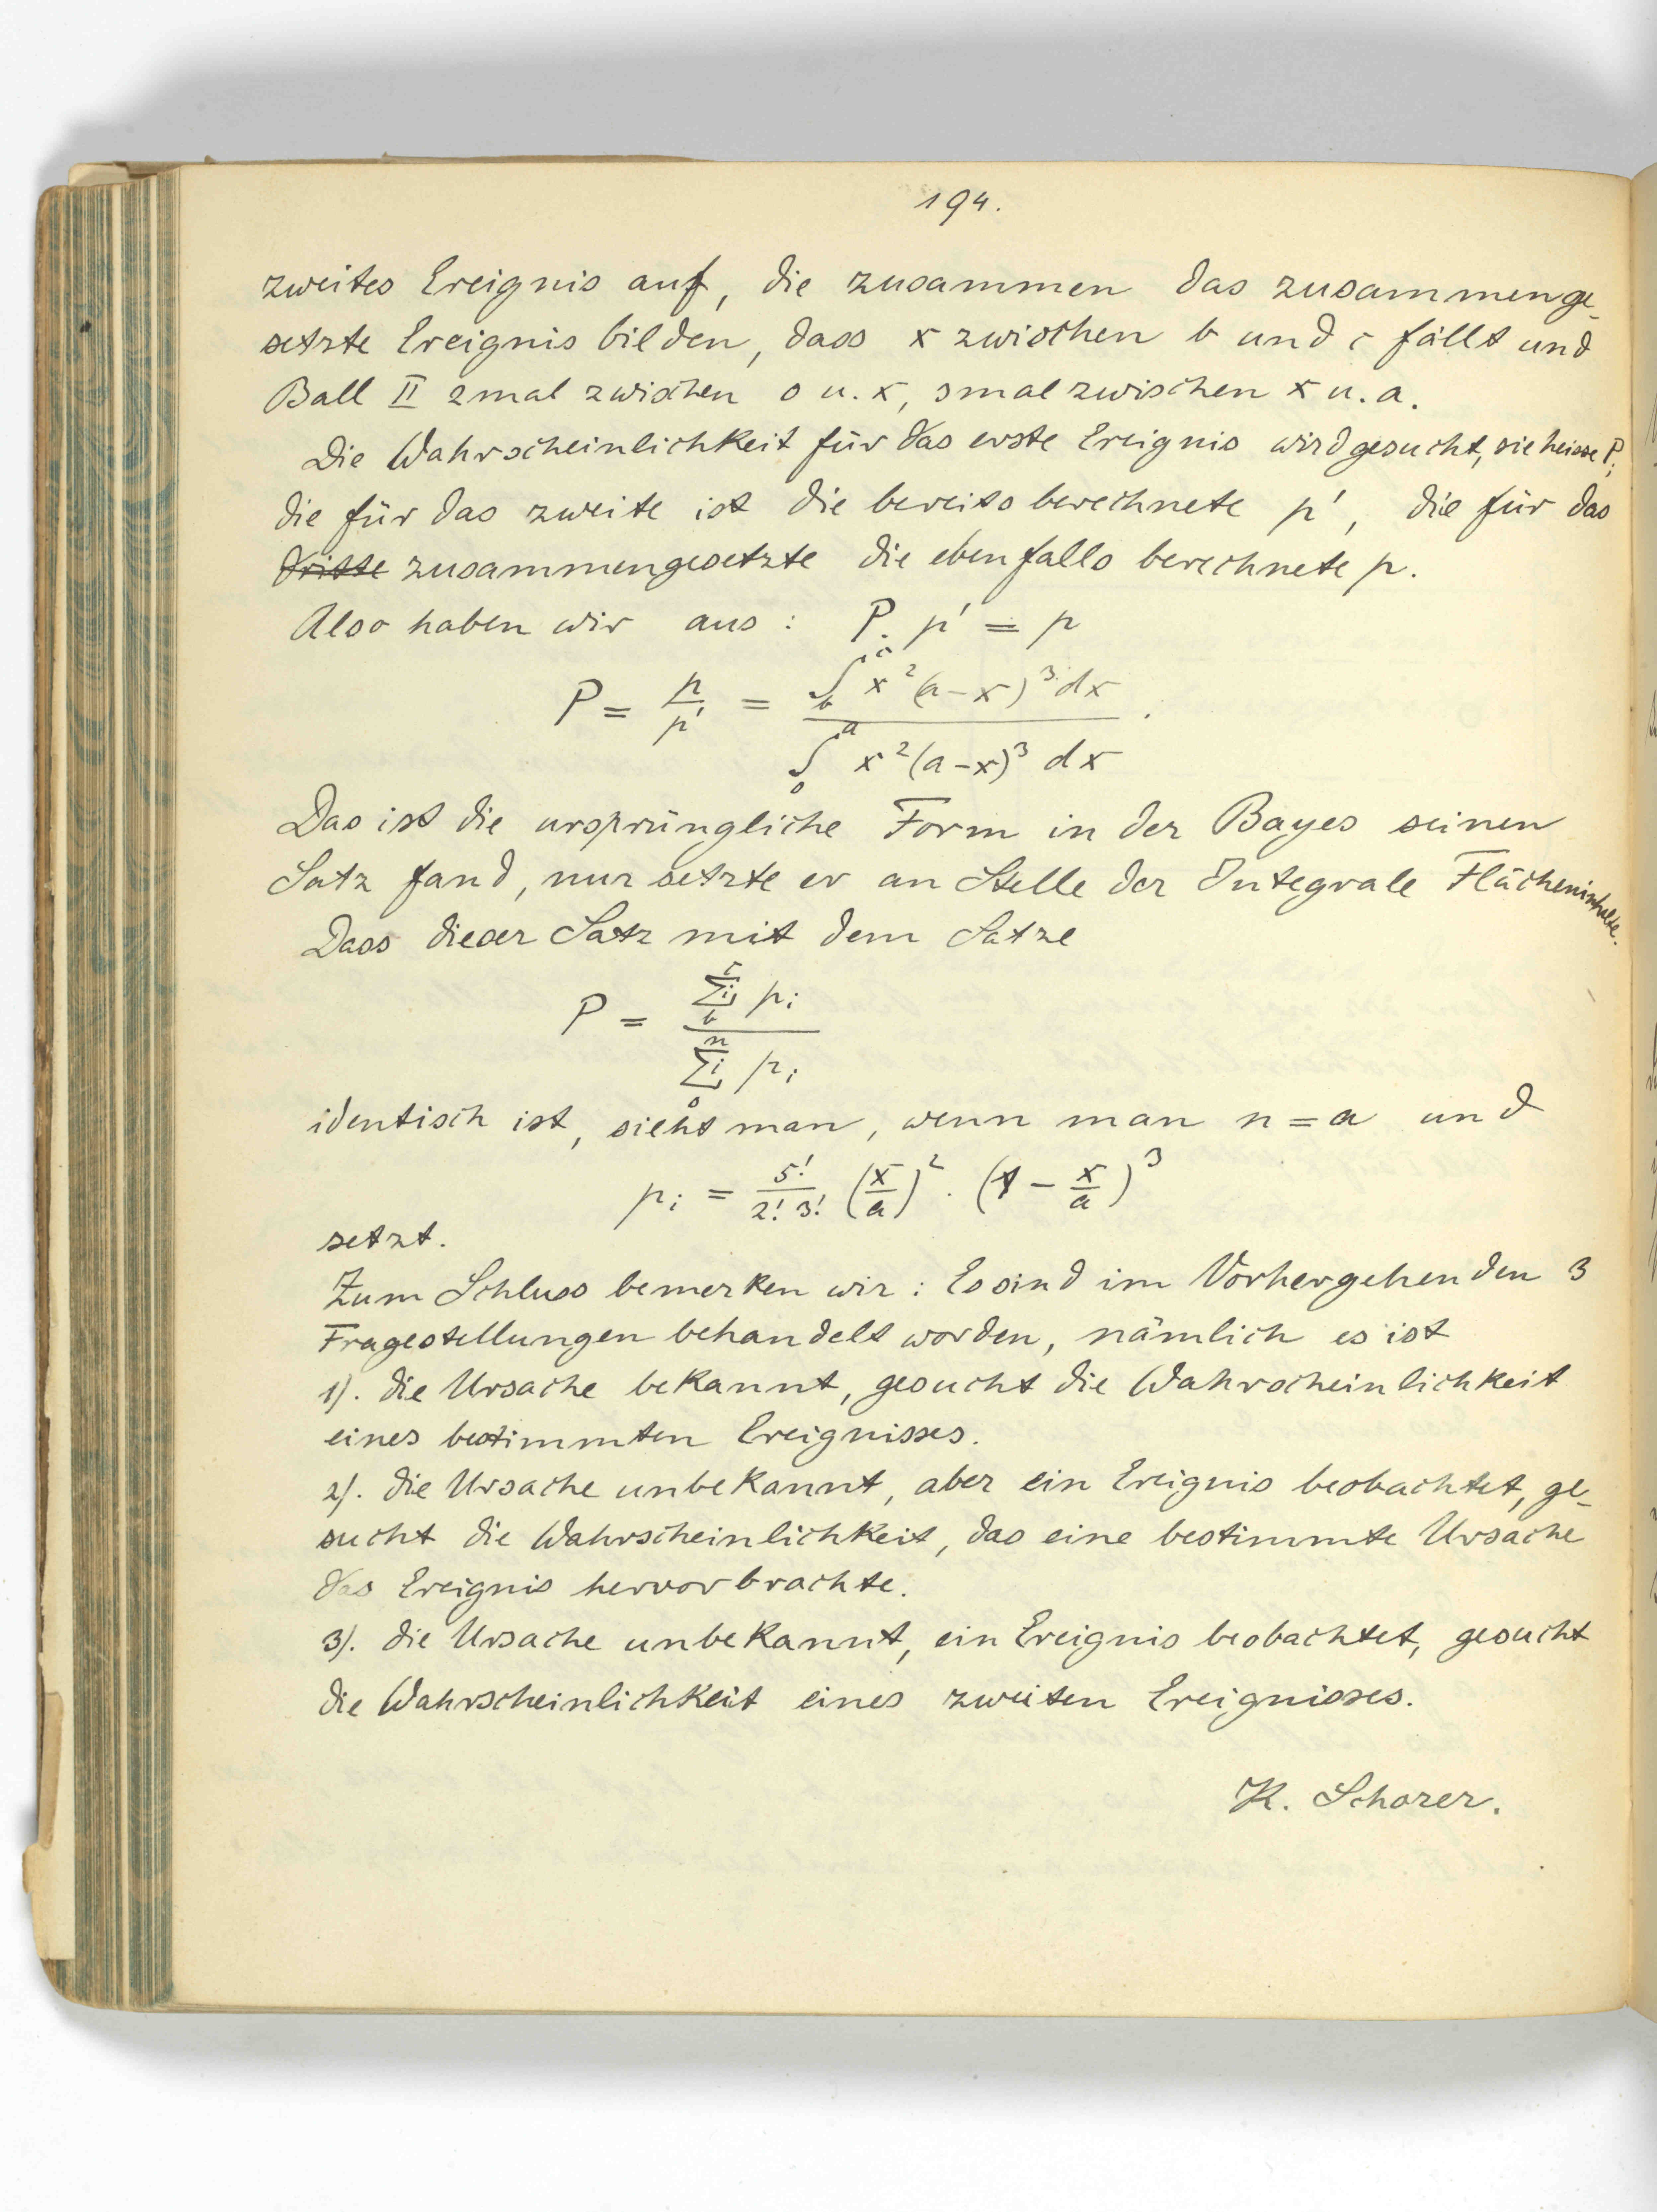 194.
zweites Ereignis auf, die zusammen das zusammenge-
setzte Ereignis bilden, dass x zwischen b und c fällt und
Ball II 2mal zwischen 0 u. x, 3mal zwischen x u. a.
Die Wahrscheinlichkeit für das erste Ereignis wird gesucht, sie heisse P;
die für das zweite ist die bereits berechnete p', die für das
dritte zusammengesetzte die ebenfalls berechnete p.
Also haben wir aus : P. p' = p
P = p/p' = ∫_b^c x²(a-x)³ dx / ∫_0^a x²(a-x)³ dx .
Das ist die ursprüngliche Form in der Bayes seinen
Satz fand, nur setzte er an Stelle der Integrale Flächeninhalte.
Dass dieser Satz mit dem Satze
P = Σ_b^c i p_i / Σ_0^n i p_i
identisch ist, sieht man, wenn man n = a und
p_i = 5!/(2! 3!) (x/a)² . (1 - x/a)³
setzt.
Zum Schluss bemerken wir : Es sind im Vorhergehenden 3
Fragestellungen behandelt worden, nämlich es ist
1). die Ursache bekannt, gesucht die Wahrscheinlichkeit
eines bestimmten Ereignisses.
2). die Ursache unbekannt, aber ein Ereignis beobachtet, ge-
sucht die Wahrscheinlichkeit, das eine bestimmte Ursache
das Ereignis hervorbrachte.
3). die Ursache unbekannt, ein Ereignis beobachtet, gesucht
die Wahrscheinlichkeit eines zweiten Ereignisses.
K. Schorer.